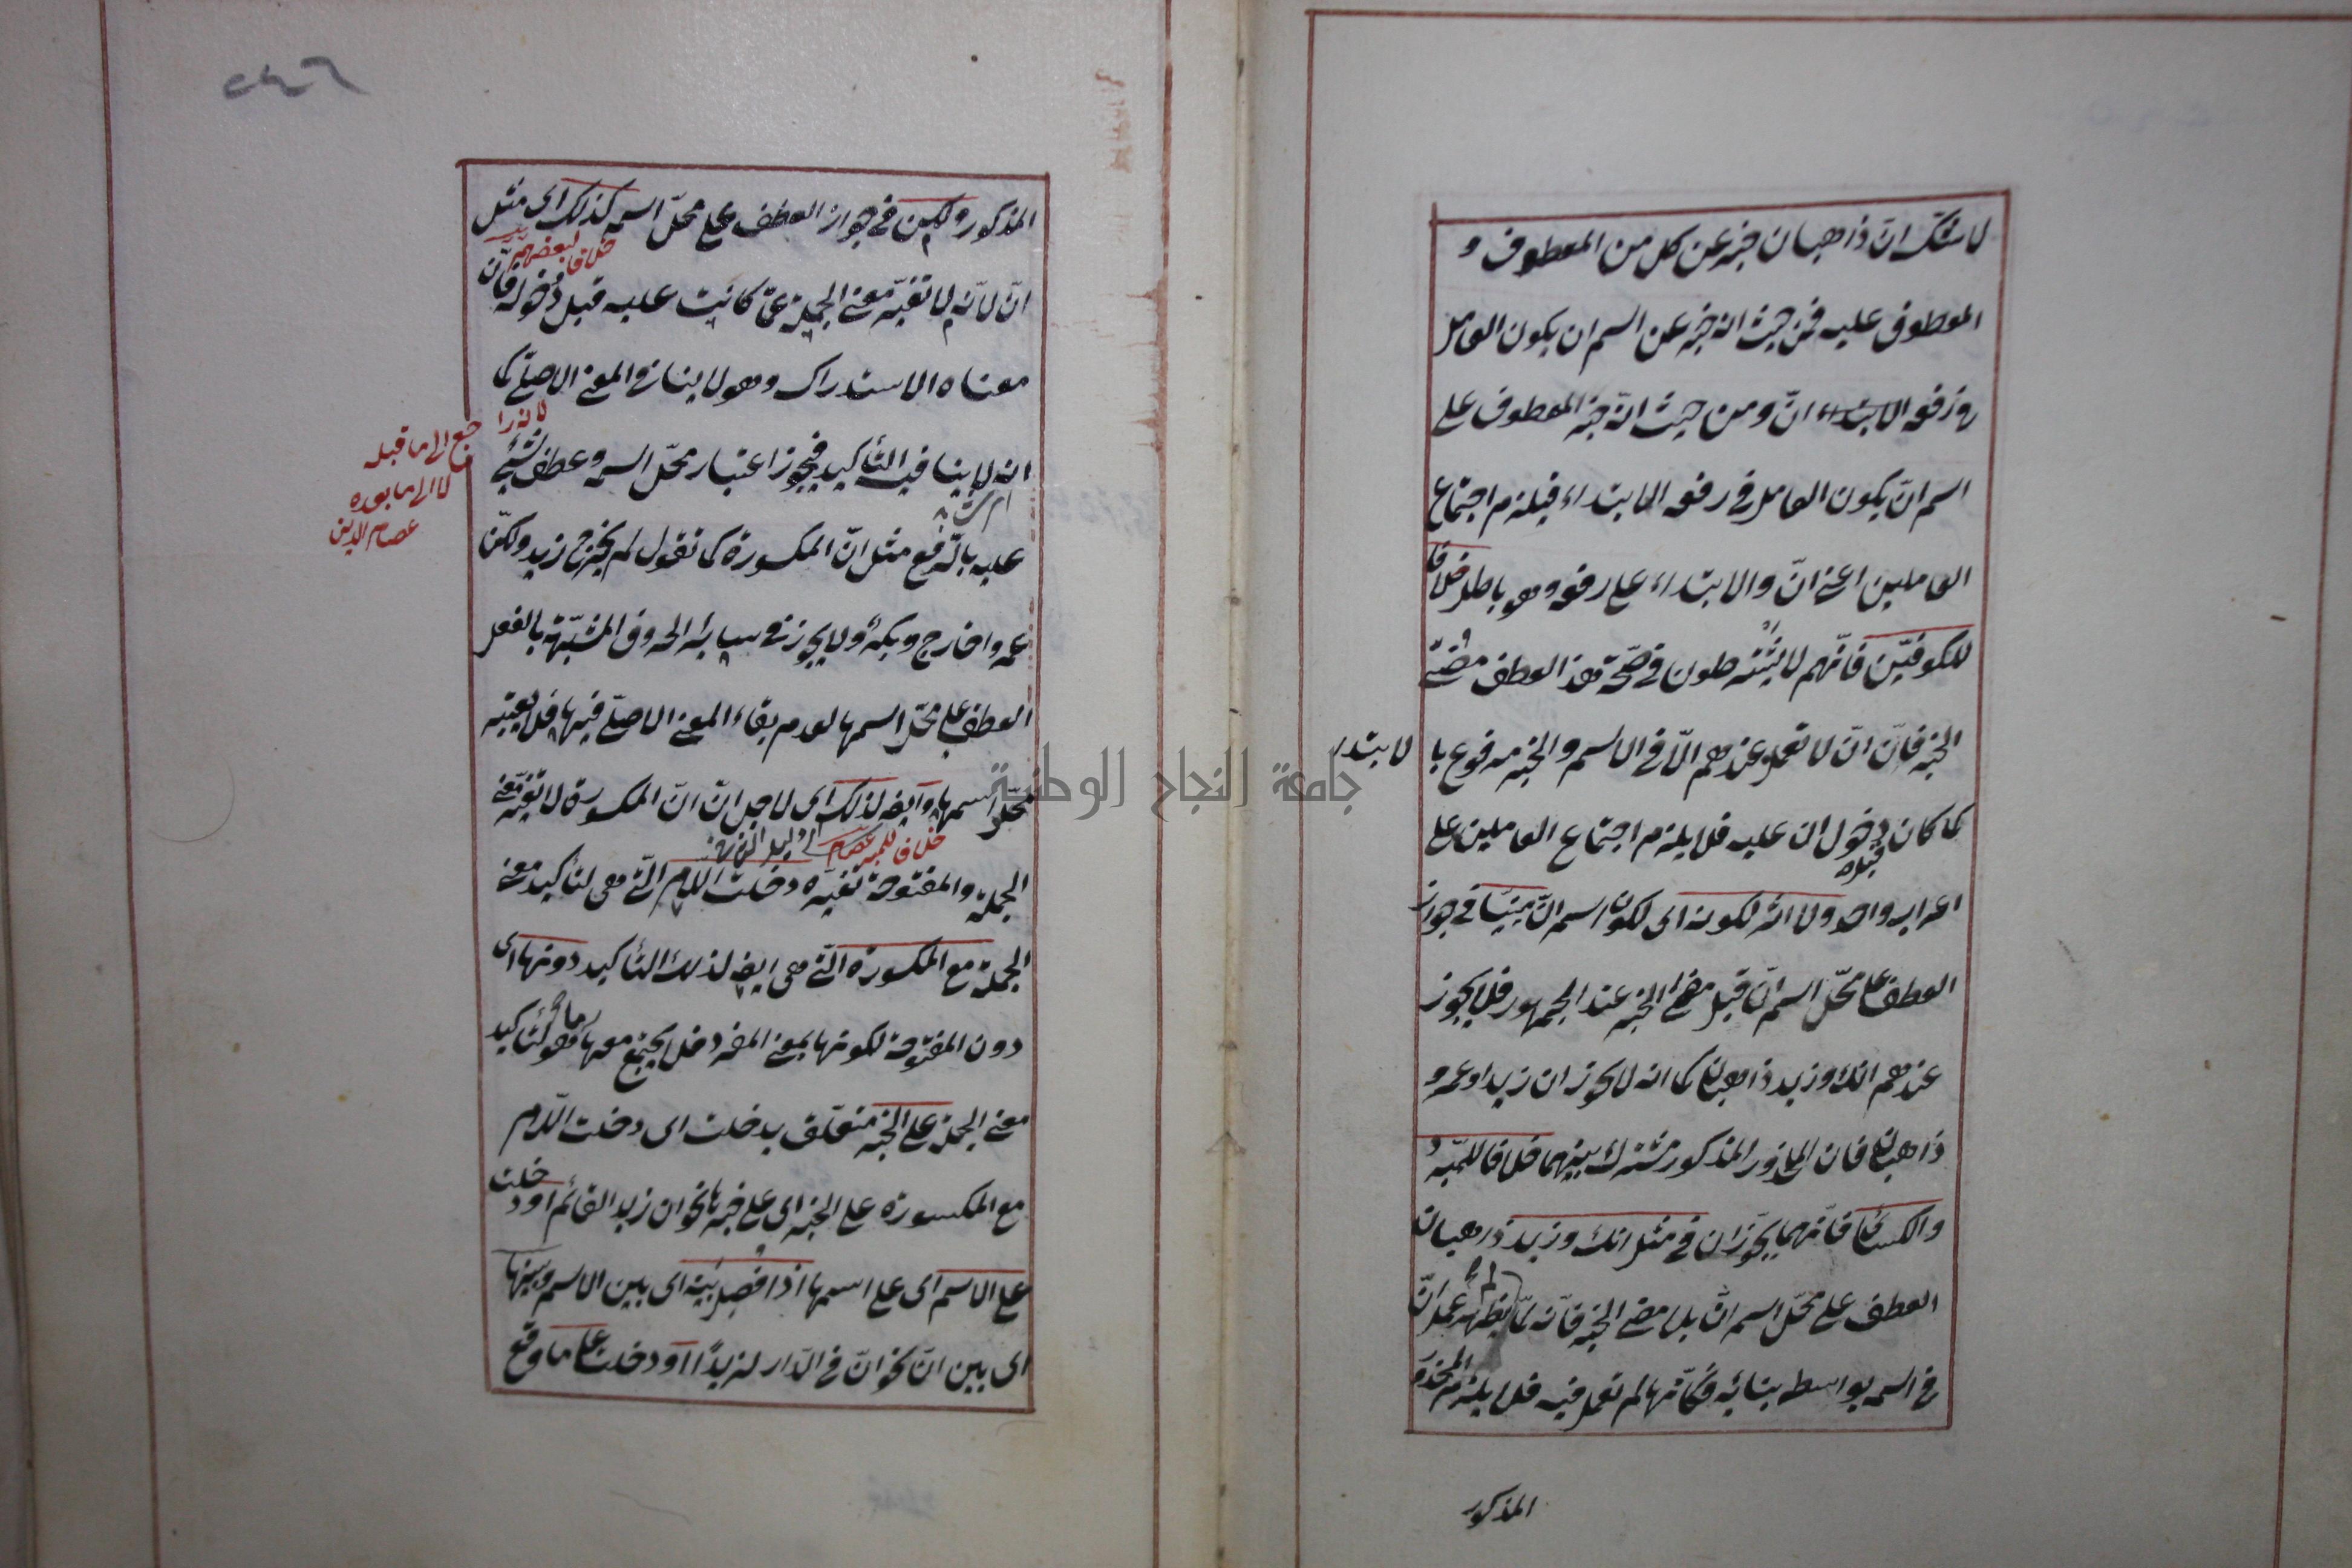 لا شك ان ذاهبان خبر عن كل من المعطوف و
المعطوف عليه فمن حيث انه خبر عن اسم ان يكون العامل
في رفعه الابتداء ان ومن حيث انه خبر المعطوف على
اسم ان يكون العامل في رفعه الابتداء فيلزم اجتماع
العاملين اعنى انّ والابتداء على رفعه وهو باطل خلافا
للكوفيّين فانّهم لا يشترطون في صحّة هذا العطف مضىّ
الخبر فانّ انّ لا تعمل عندهم الّا في الاسم والخبر مرفوع با لابتداء
كما كان قبل دخول ان عليه فلا يلزم اجتماع العاملين على
اعراب واحد ولا اثر لكونه اى لكون اسم انّ مبنيّا في جواز
العطف على محلّ اسم انّ قبل مضىّ الخبر عند الجمهور فلا يجوز
عندهم انك وزيد ذاهبان كما انه لا يجوز ان زيدا وعمرو
ذاهبان فان المحذور المذكور مشترك بينهما خلافا للمبرّد
والكسائى فانّهما يجوّزان في مثل انك وزيد ذاهبان
العطف على محلّ اسم انّ بلا مضى الخبر فانّه لمّا لم يظهر عمل انّ
في اسمه بواسطة بنائه فكأنّها لم تعمل فيه فلا يلزم المحذور
المذكور
٢٤٦
المذكور ولكن في جواز العطف على محلّ اسمه كذلك اى مثل
خلافا لبعضهم
انّ لانّه لا تغيّر معنى الجملة عمّا كانت عليه قبل دخوله فانّ
معناه الاستدراك وهو لا ينافي المعنى الاصلى كما
لانه راجع الى ما قبله
لا الى ما بعده
عصام الدين
انه لا ينافيه التأكيد فيجوز اعتبار محلّ اسمه وعطف شئ
عليه بالرّفع مثل انّ المكسورة كما تقول لم يخرج زيد ولكنّ
عمروا خارج وبكر ولا يجوز في سائر الحروف المشبّهة بالفعل
العطف على محلّ اسمها لعدم بقاء المعنى الاصلى فيها فلا يعتبر
محلّ اسمها ولذلك اى لاجل انّ انّ المكسورة لا تغيّر معنى
خلافا للمبرد عصام
الجملة والمفتوحة تغيّره دخلت اللّام التى هى لتأكيد معنى
الجملة مع المكسورة التى هى ايضا لذلك التأكيد دونها اى
دون المفتوحة لكونها بمعنى المفرد فلا يجتمع معها ما هو لتأكيد
معنى الجملة على الخبر متعلق بدخلت اى دخلت اللّام
مع المكسورة على الخبر اى على خبرها نحو ان زيد القائم او دخلت
على الاسم اى على اسمها اذا فصل بينه اى بين الاسم وبينها
اى بين انّ نحو انّ في الدّار لزيدًا او دخلت على ما وقع
جامعة النجاح الوطنية